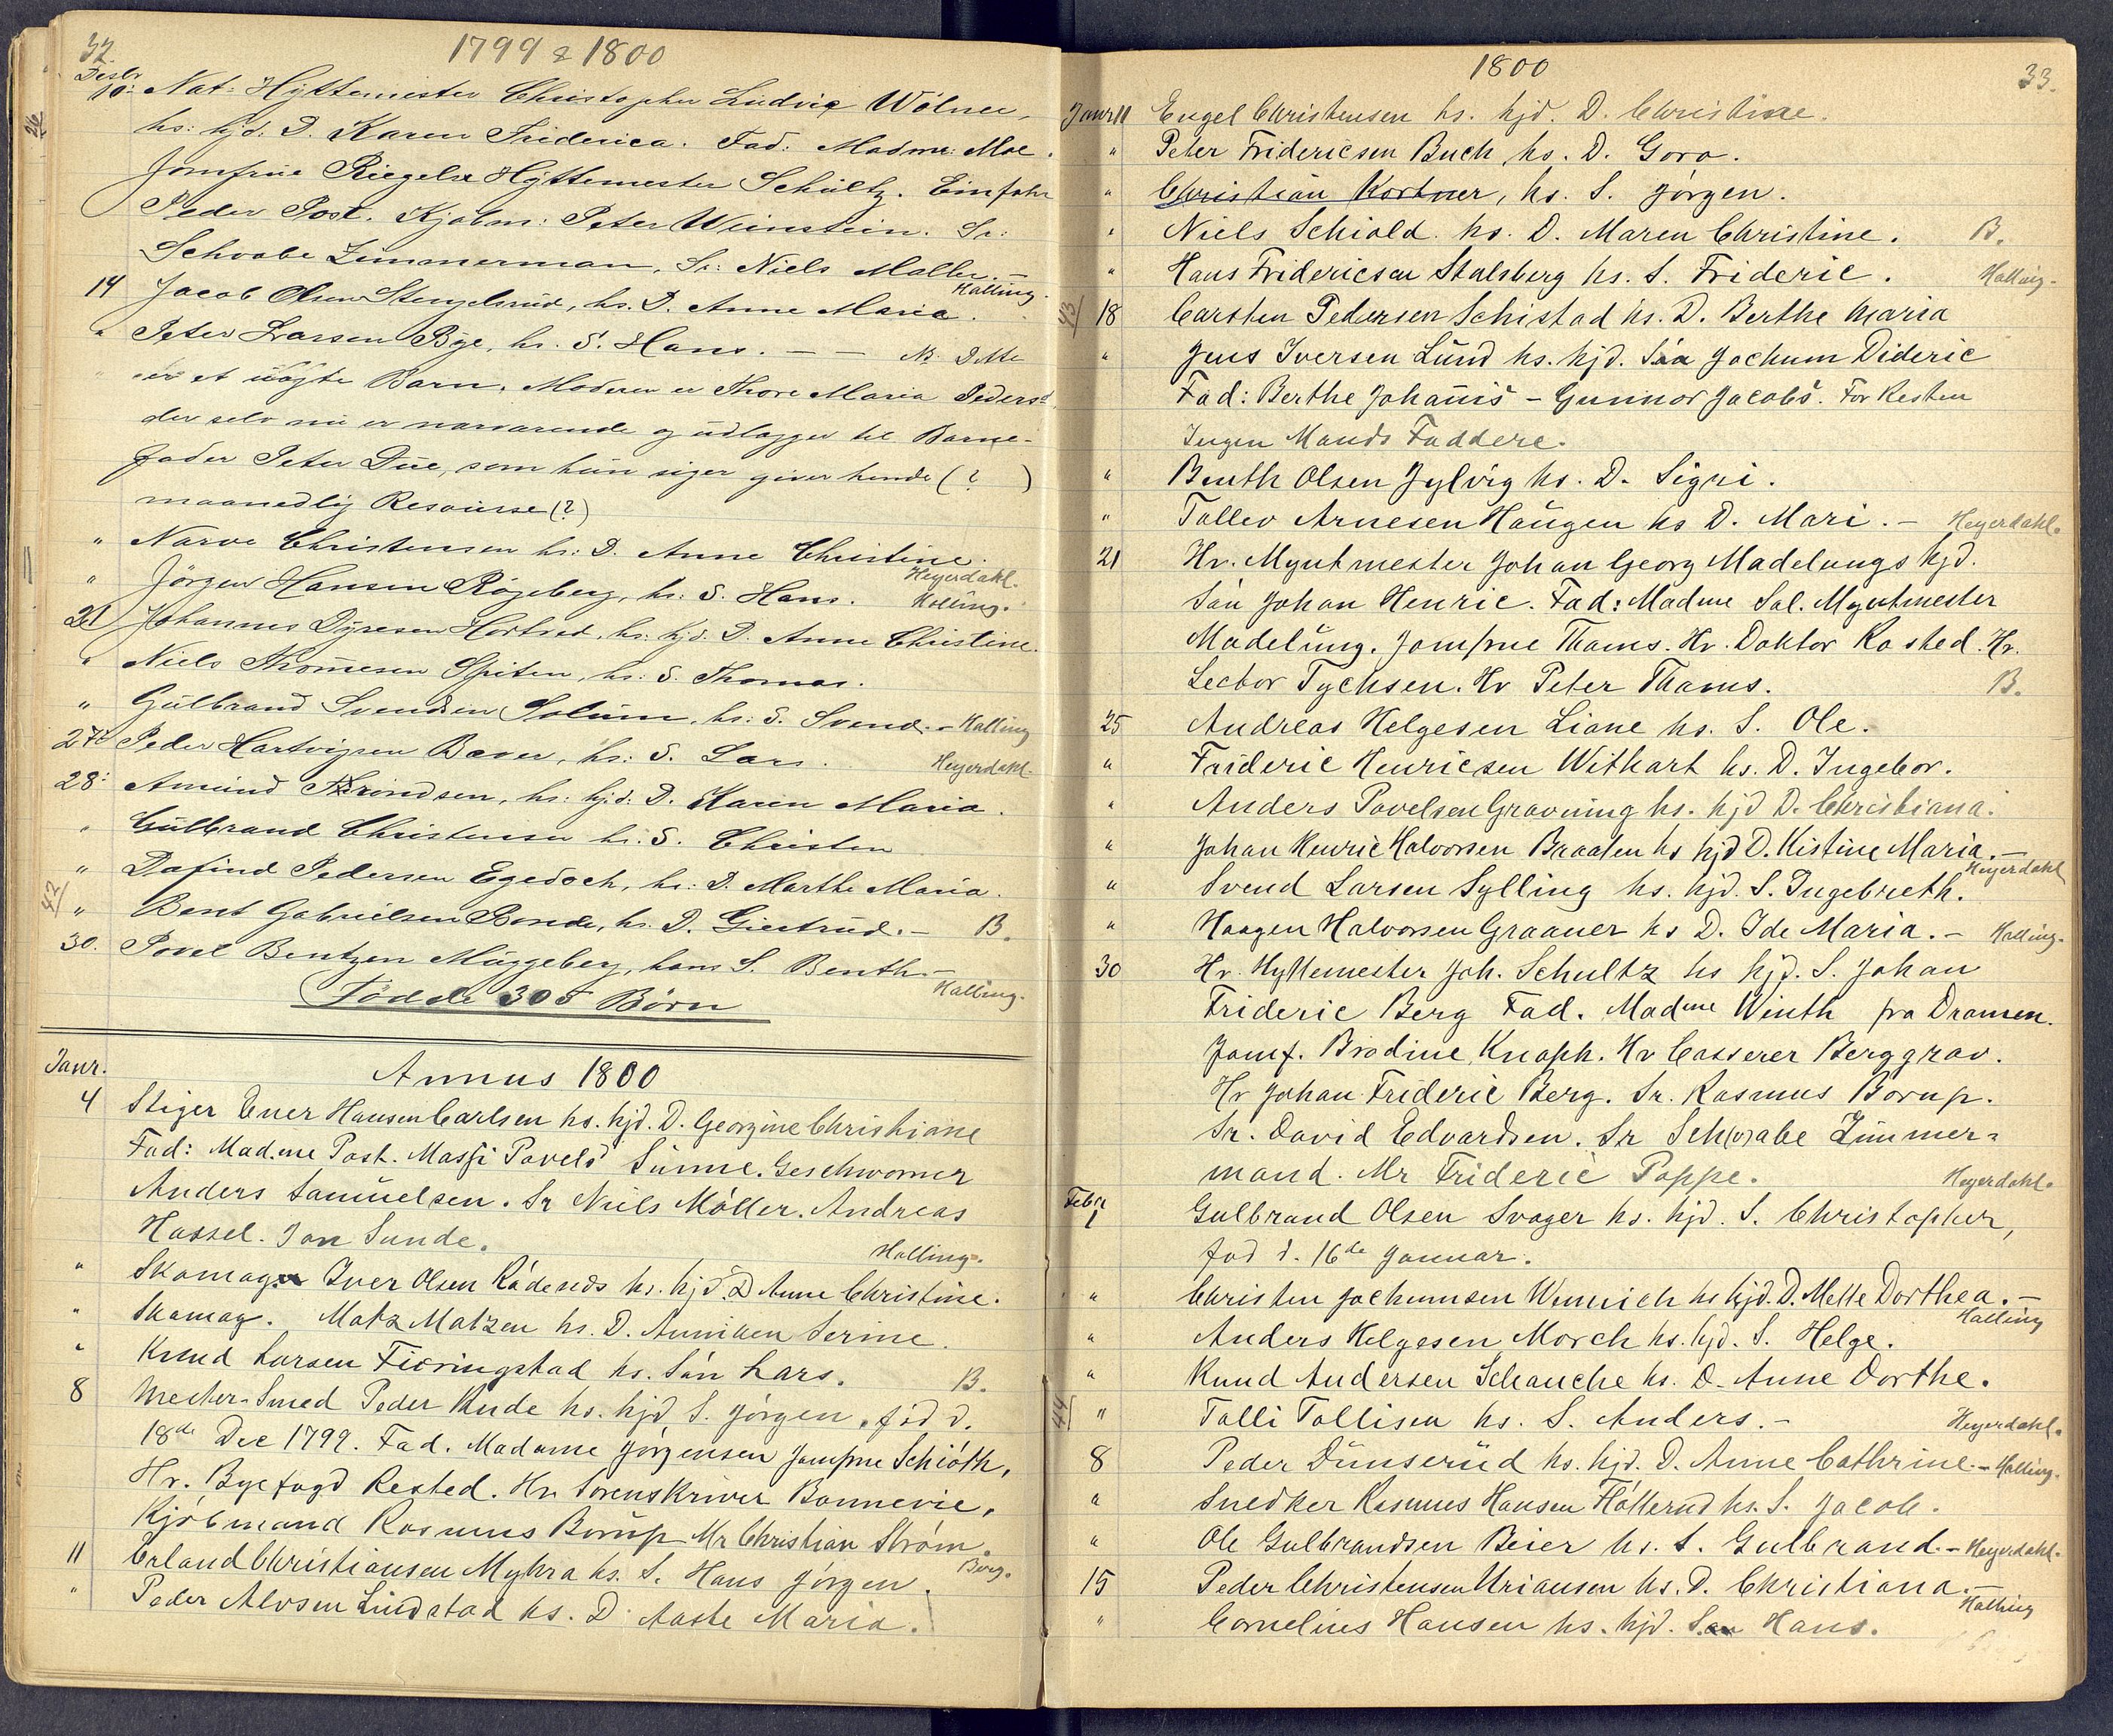 32.
1799 & 1800
Desbr
10: Nat: Hyttemester Christopher Ludvig Wölner,
hs: hjd: D. Karen Friderica. Fad: Madme: Moe.
Jomfrue Riegels Hyttemester Schultz. Einfahr
Peder Post. Kjøbm: Peter Weinstein. Sr:
Schvabe Zimmerman, Sr: Niels Møller. –
Halling.
14 Jacob Olsen Stengelsrud, hs. D. Anne Maria.
" Peter Larsen Bye, hs. S. Hans. – – NB Dette
er et uægte Barn. Moderen er Thore Maria Pedersd.
der selv nu er nærværende og udlægger til Barne-
fader Peter Due, som hun siger giver hende (? )
maanedlig Resourse (?)
" Narve Christensen hs: D. Anne Christine.
Heyerdahl.
" Jörgen Hansen Rögeberg, hs: S. Hans. Halling.
21 Johannes Dyresen Hortved, hs: hjd. D. Anne Christine.
" Niels Thomesen Spiten, hs: S. Thomas.
" Gulbrand Svendsen Solum, hs: S. Svend. – Halling
27: Peder Hartvigsen Bæver, hs: S. Lars. Heyerdahl.
28: Amund Throndsen, hs: hjd: D. Karen Maria.
" Gulbrand Christensen hs: S. Christen
" Dafind Pedersen Egedoch, hs: D. Marthe Maria.
42/ " Bent Gabrielsen Bonde, hs. D. Giertrud. – B.
30. Povel Bentzen Muggeberg, hans S. Benth –
Halling.
Födde 305 Börn
Janr.
Annus 1800
4 Stiger Ener Hansen Carlsen hs. hjd. D. Georgine Christiane
Fad: Mad.me Post. Massi Povels Sunne. Geschworner
Anders Samuelsen. Sr Niels Möller. Andreas
Hassel. Jan Sunde.
Halling.
" Skomager Iver Olsen Rödesnds hs. hjd. D Anne Christine.
" Skomag. Matz Matzen hs. D. Anniken Serine.
" Knud Larsen Fieringstad hs. Sön Lars. B.
8 Mester-Smed Peder Rude hs. hjd S. Jörgen, föd d.
18de Dec 1799. Fad. Madame Jörgensen Jomfrue Schiöth,
Hr. Byefogd Rested. Hr. Sorenskriver Bonnevie,
Kjöbmand Rasmus Borup Mr Christian Ström.
Berg.
11 Erland Christiansen Myhra hs. S. Hans Jörgen.
" Peder Alvsen Lindstad hs. D. Aaste Maria.
1800
33.
Janr 11 Engel Christensen hs. hjd. D. Christine.
" Peter Fridericsen Buch, hs. D. Goro.
" Christian Kortner, hs. S. Jörgen.
" Niels Schiold. hs. D. Maren Christine. B.
" Hans Fridericsen Stalsberg hs. S. Frideric. Halling.
43/ 18 Carsten Pedersen Schistad hs. D. Berthe Maria
" Jens Iversen Lund hs. hjd. Sön Jochum Dideric
Fad: Berthe Johannis – Gunnor Jacobs. For Resten
Ingen Mands Faddere.
" Benth Olsen Jylvig hs. D. Signi.
" Tollev Arnesen Haugen hs D. Mari. – Heyerdahl.
21 Hr. Myntmester Johan Georg Madelungs hjd.
Sön Johan Henric. Fad: Madme Sal. Myntmester
Madelung. Jomfrue Thams. Hr. Doktor Rosted. Hr.
Lector Tychsen. Hr Peter Thams. B.
25 Andreas Helgesen Liane hs. S. Ole.
" Frideric Henricsen Withart hs. D. Ingebor.
" Anders Povelsen Gravning hs. hjd D. Christiana.
" Johan Henric Halvorsen Braaten hs hjd D. Kistine Maria. –
Heyerdahl
" Svend Larsen Sylling hs. hjd. S. Ingebreth.
" Haagen Halvorsen Graaner hs D. Ide Maria. – Halling.
30 Hr. Hyttemester Joh. Schultz hs hjd. S. Johan
Frideric Berg Fad. Madme Winth fra Dramen.
Jomf. Brodine Knoph. Hr Casserer Berggrav.
Hr Johan Frideric Berg. Sr. Rasmus Borup.
Sr. David Edvardsen. Sr Sch(v)abe Zimmer=
mand. Mr Frideric Poppe. Heyerdahl.
Febr
1 Gulbrand Olsen Svager hs. hjd. S. Christopher,
fød d. 16de Januar.
" Christen Jochumsen Wennich hs hjd. D. Mette Dorthea. –
Halling
" Anders Helgesen Morch hs. hjd. S. Helge.
" Knud Andersen Schauche hs. D. Anne Dorthe.
44/ " Tolli Tollisen hs. S. Anders. – Heyerdahl.
8 Peder Dunserud hs. hjd. D. Anne Cathrine – Halling.
" Snedker Rasmus Hansen Flötterud hs. S. Jacob.
" Ole Gulbrandsen Beier hs. S. Gulbrand. – Heyerdahl.
15 Peder Christensen Uriansen hs. D. Christiana. –
Halling
" Cornelius Hansen hs. hjd. Søn Hans.